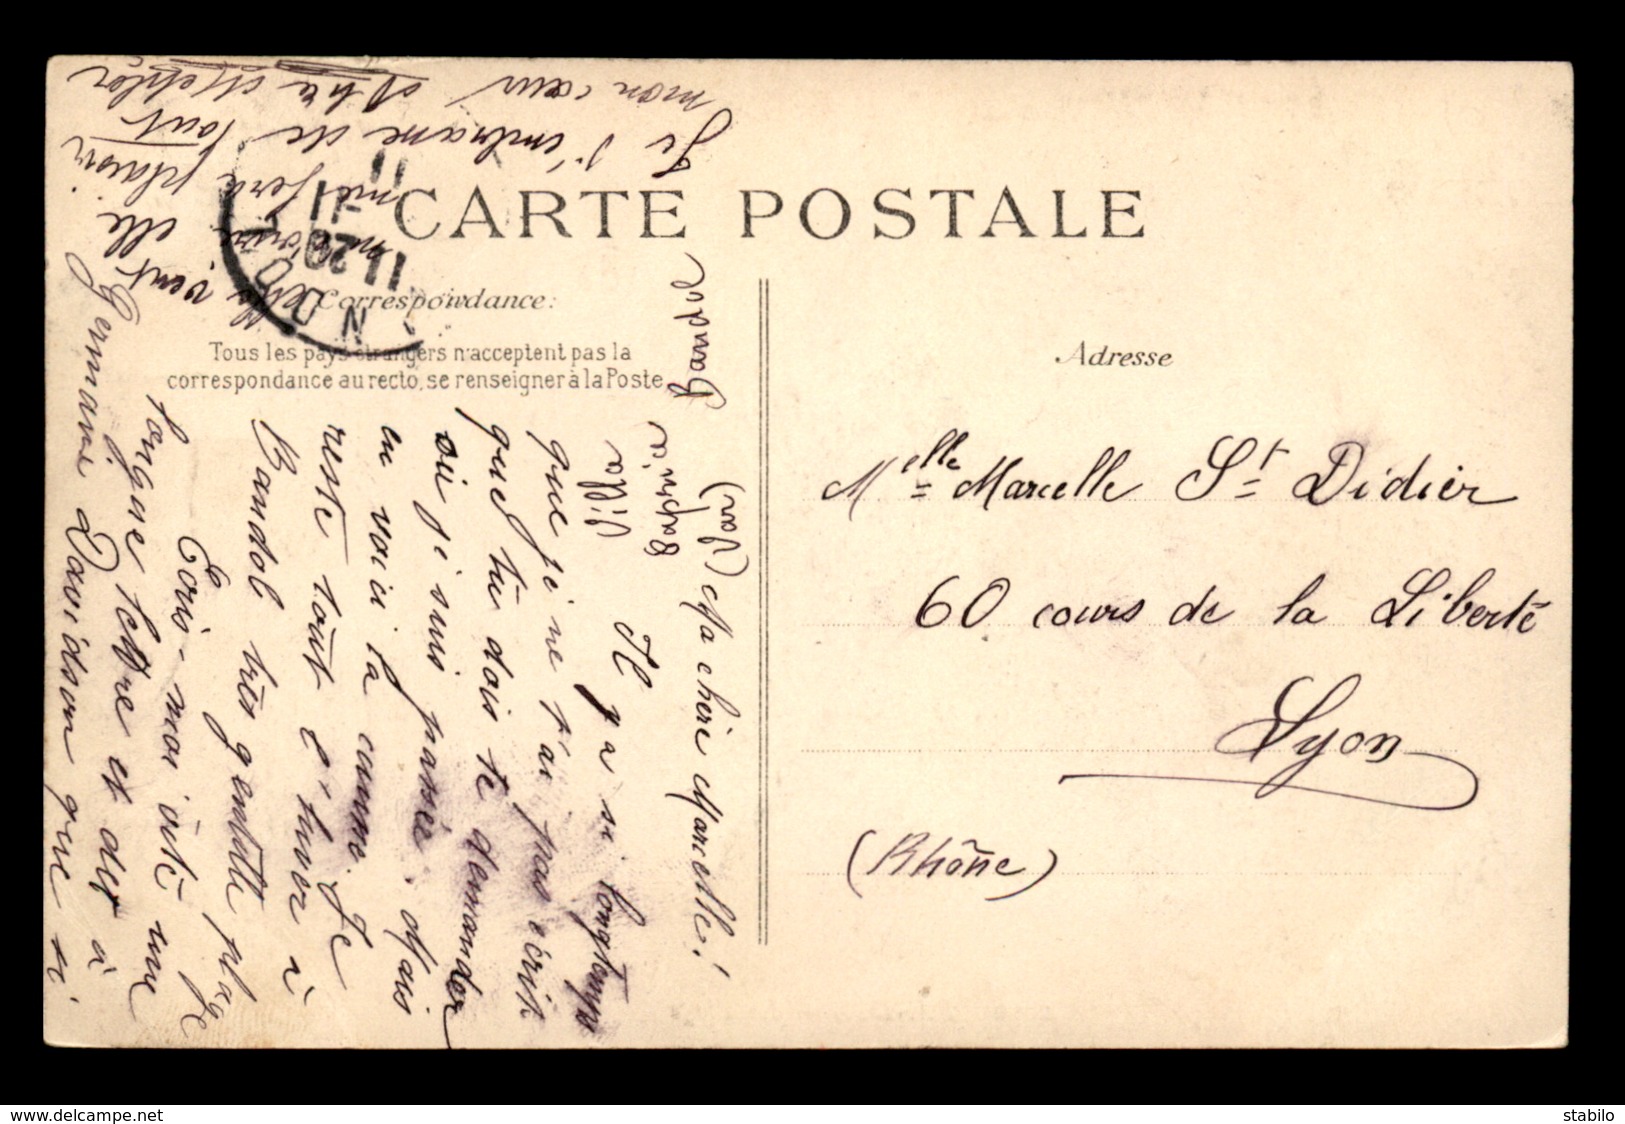 CARTE POSTALE
Correspondance:
Tous les pays étrangers n'acceptent pas la
correspondance au recto, se renseigner à la Poste
Adresse
Melle Marcelle St Didier
60 cours de la Liberté
Lyon
(Rhône)
Bandol
(Var) Ma chérie Marcelle!
Il y a si longtemps
que je ne t'ai pas écrit
que tu dois te demander
où je suis passée. Mais
en voici la cause. Je
reste tout l'hiver à
Bandol très gentille plage
Ecris-moi vite une
longue lettre et dis à
Germaine Davidson que si
veut elle
m'écrire
me fera plaisir
Je t'embrasse de tout
mon cœur
N DOL
11 20
11 - 1
11
www.delcampe.net
stabilo